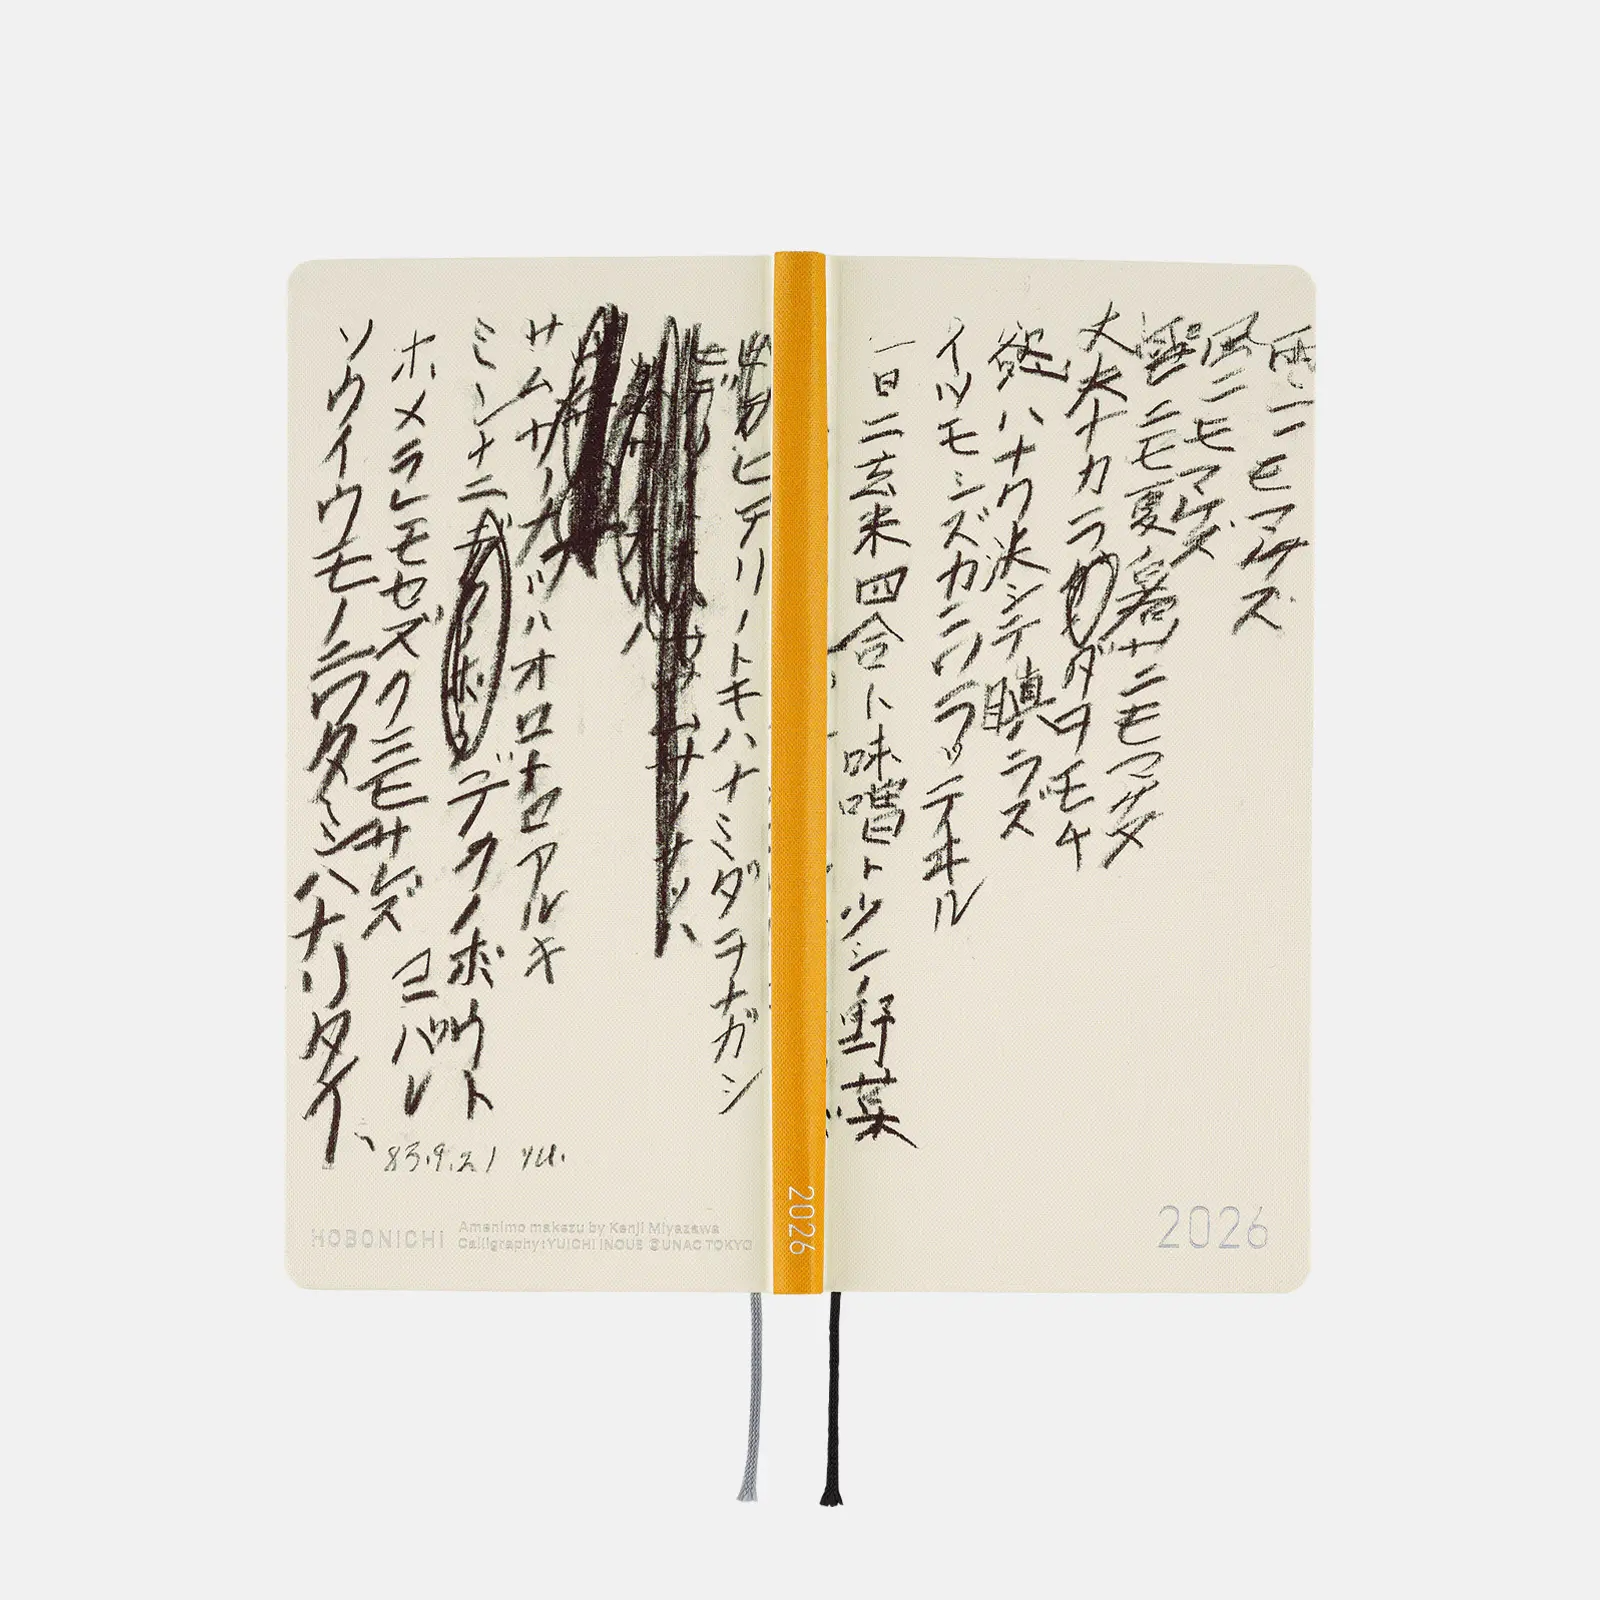 雨ニモマケズ
風ニモマケズ
雪ニモ夏ノ暑サニモマケヌ
丈夫ナカラダヲモチ
慾ハナク決シテ瞋ラズ
イツモシズカニワラッテヰル
一日ニ玄米四合ト味噌ト少シノ野菜
2026
2026
ヒテリノトキハナミダヲナガシ
サムサノナツハオロオロアルキ
ミンナニデクノボウト
ヨバレ
ホメラレモセズクニモサレズ
ソウイウモノニワタシハナリタイ、
83.9.21 YU.
HOBONICHI
Amenimo makezu by Kenji Miyazawa
Calligraphy:YUICHI INOUE ©UNAC TOKYO